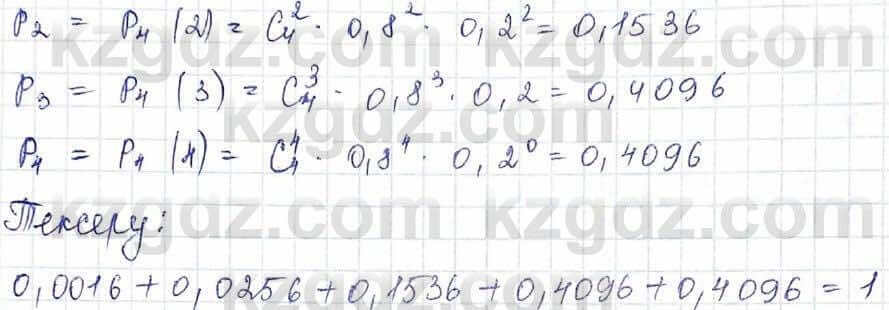 P₂ = P₄ (2) = C₄² · 0,8² · 0,2² = 0,1536
P₃ = P₄ (3) = C₄³ · 0,8³ · 0,2 = 0,4096
P₄ = P₄ (4) = C₄⁴ · 0,8⁴ · 0,2⁰ = 0,4096
Тексеру:
0,0016 + 0,0256 + 0,1536 + 0,4096 + 0,4096 = 1
kzgdz.com kzgdz.com
kzgdz.com
kzgdz.com kzgdz.com